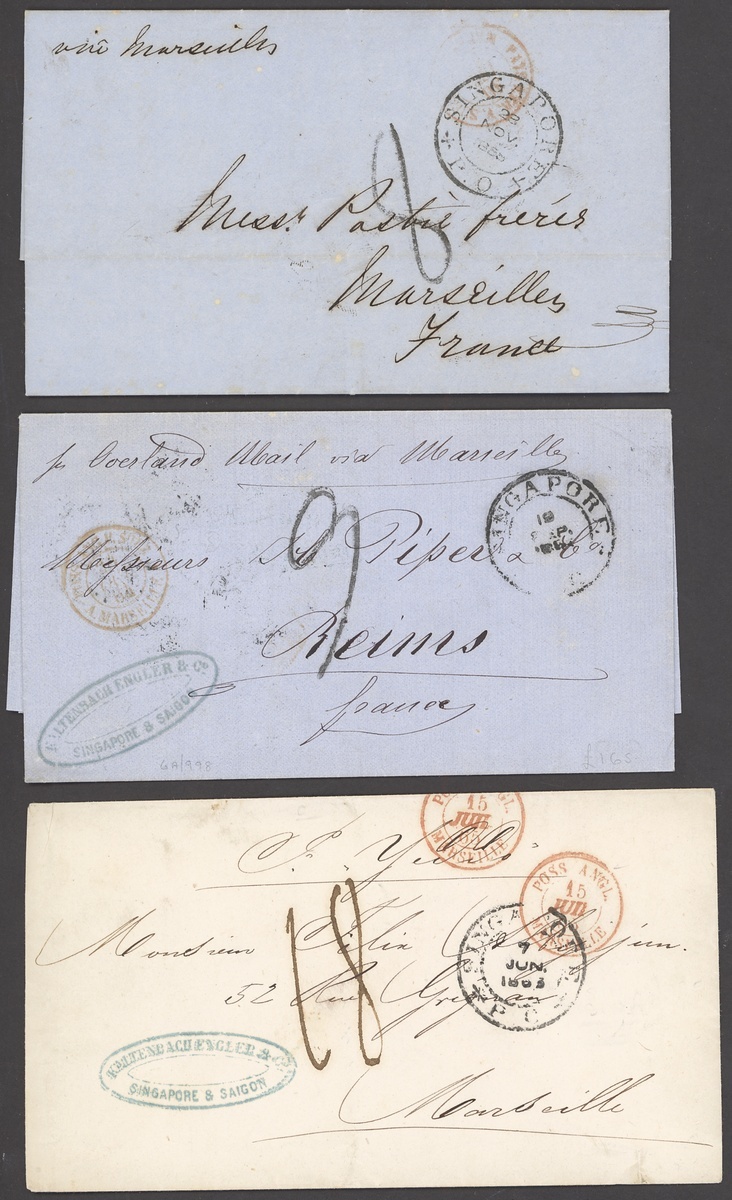 via Marseilles
SINGAPORE
P.O.
NOV.
8
Messrs Pastré frères
Marseilles
France
pr Overland Mail via Marseilles
SINGAPORE
19
SEP.
A MARSEILLE
9
Messieurs Piper & Co
Reims
france
KALTENBACH ENGLER & Co
SINGAPORE & SAIGON
GA/998
£165
POSS ANGL.
15
JUIL
MARSEILLE
POSS ANGL.
15
JUIL
MARSEILLE
SINGAPORE
7
JUN.
1863
P O
18
Monsieur Félix jun.
52 Rue
KALTENBACH ENGLER & Co
SINGAPORE & SAIGON
Marseille